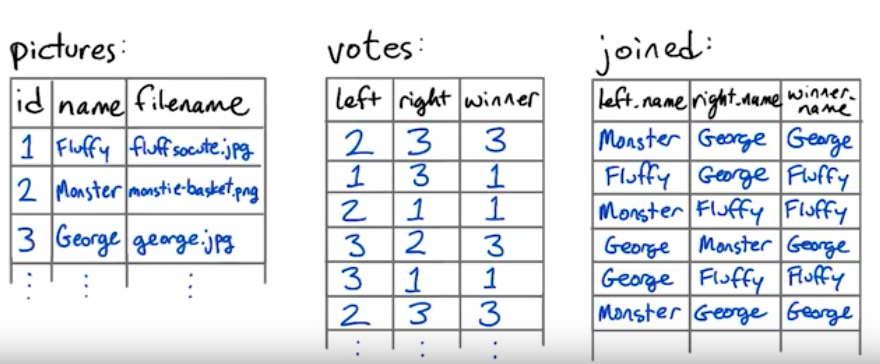 pictures:
id name filename
1 Fluffy fluffsocute.jpg
2 Monster monstie-basket.png
3 George george.jpg
votes:
left right winner
2 3 3
1 3 1
2 1 1
3 2 3
3 1 1
2 3 3
joined:
left.name right.name winner.name
Monster George George
Fluffy George Fluffy
Monster Fluffy Fluffy
George Monster George
George Fluffy Fluffy
Monster George George